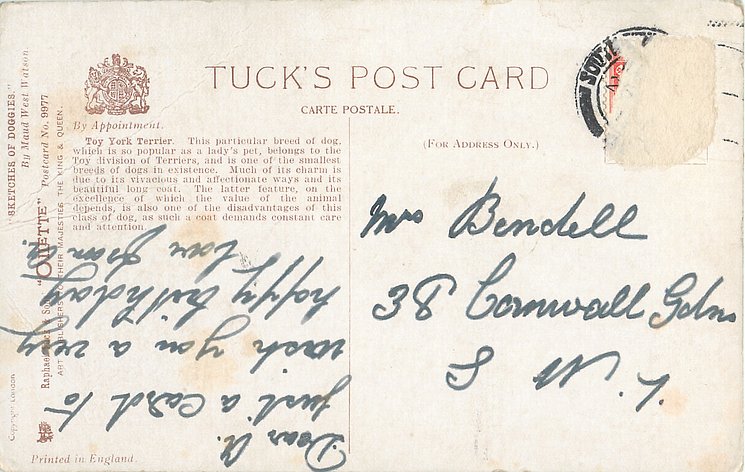 TUCK'S POST CARD
CARTE POSTALE.
(FOR ADDRESS ONLY.)
By Appointment.
"SKETCHES OF DOGGIES."
By Maud West Watson
Raphael Tuck & Sons' "OILETTE" Postcard No. 9977
ART PUBLISHERS TO THEIR MAJESTIES THE KING & QUEEN.
Copyright London
Toy York Terrier. This particular breed of dog,
which is so popular as a lady's pet, belongs to the
Toy division of Terriers, and is one of the smallest
breeds of dogs in existence. Much of its charm is
due to its vivacious and affectionate ways and its
beautiful long coat. The latter feature, on the
excellence of which the value of the animal
depends, is also one of the disadvantages of this
class of dog, as such a coat demands constant care
and attention.
Dear A.
Just a card to
wish you a very
happy birthday
love from
Mrs Bendell
38 Cornwall Gdns
S W 7
Printed in England.